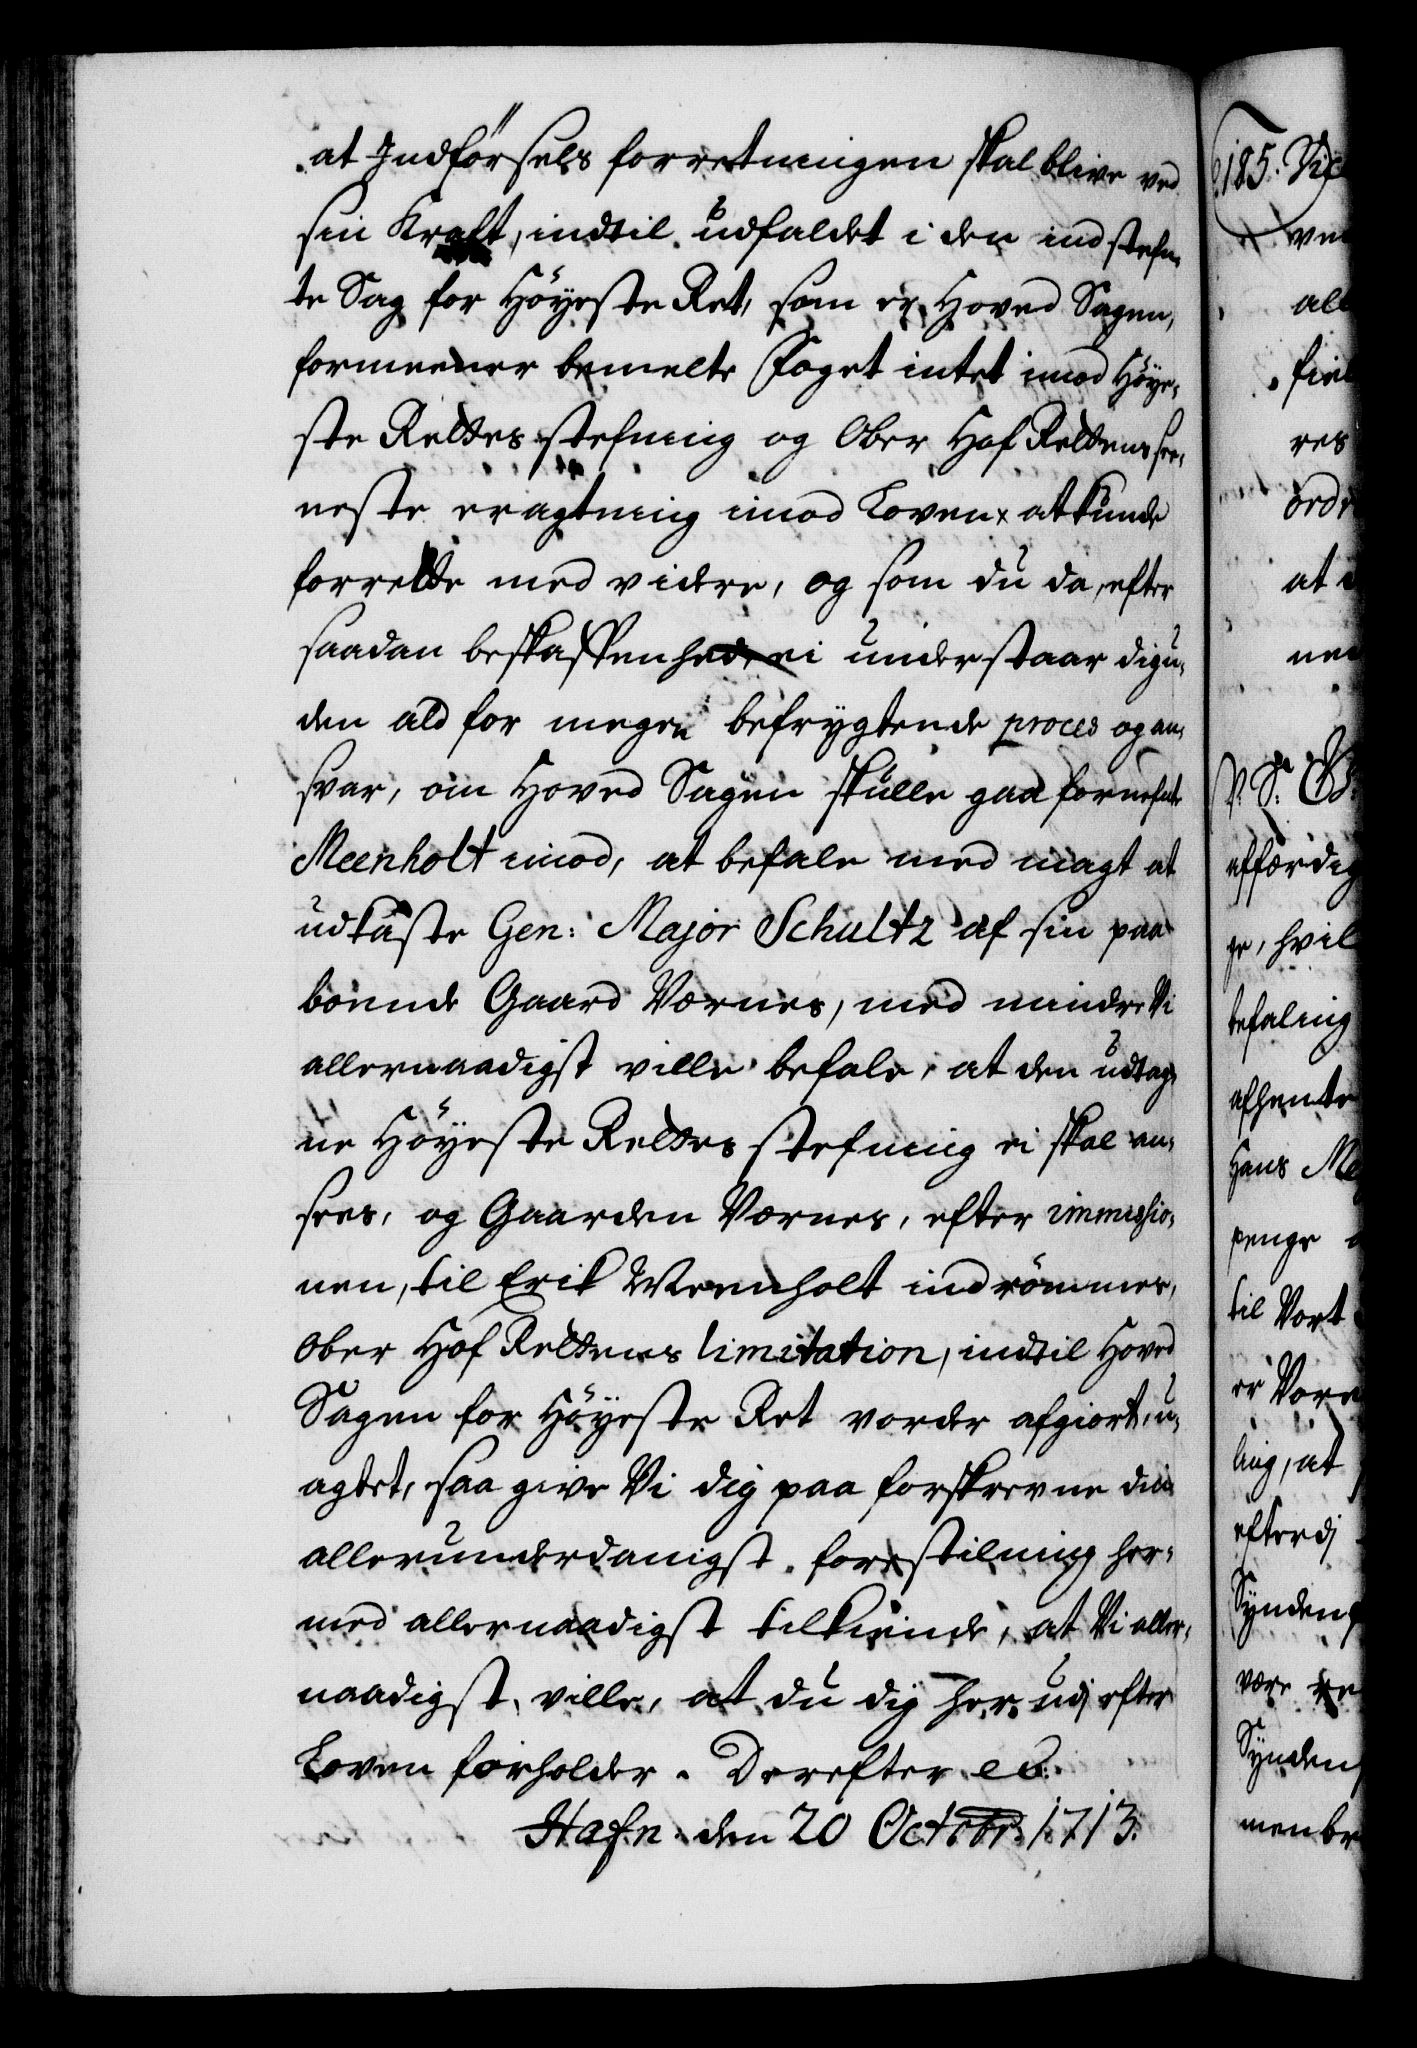 at Indförsels forretningen skal blive ved
sin Kraft, indtil udfaldet i den indstefn¬
te Sag for Höyeste Ret, som er Hoved Sagen,
formeener bemelte Foget intet imod Höye¬
ste Rettes stefning og Ober Hof Rettens see¬
neste eragtning imod Loven x at kunde
forrette med videre, og som du da efter
saadan beskaffenhed ei understaar dig u¬
den ald for megen befrygtende proces og an¬
svar, om Hoved Sagen skulle gaa fornefnte
Meenholt imod, at befale med magt at
udkaste Gen: Major Schultz af sin paa
boende Gaard Værnes, med mindre Vi
allernaadigst ville befale, at den udtag¬
ne Höyeste Rettes stefning ei skal an¬
sees, og Gaarden Værnes, efter immissio¬
nen, til Erik Meenholt indrömmes,
Ober Hof Rettens limitation, indtil Hoved
Sagen for Höyeste Ret vorder afgiort, u¬
agtet, saa give Vi dig paa forskrevne din
allerunderdanigst forestilning her¬
med allernaadigst tilkiende, at Vi aller¬
naadigst ville, at du dig her udj efter
Loven forholder. Derefter etc.
Hafn: den 20 Octobr: 1713.
185. Vic
all
res
ordr
at
P. S. 
affærdig
ge, hvil
befaling
afhente
Hans Me
penge
til Vort
er Vore
ling, at
efterdj
Synden
være
Synden
men br